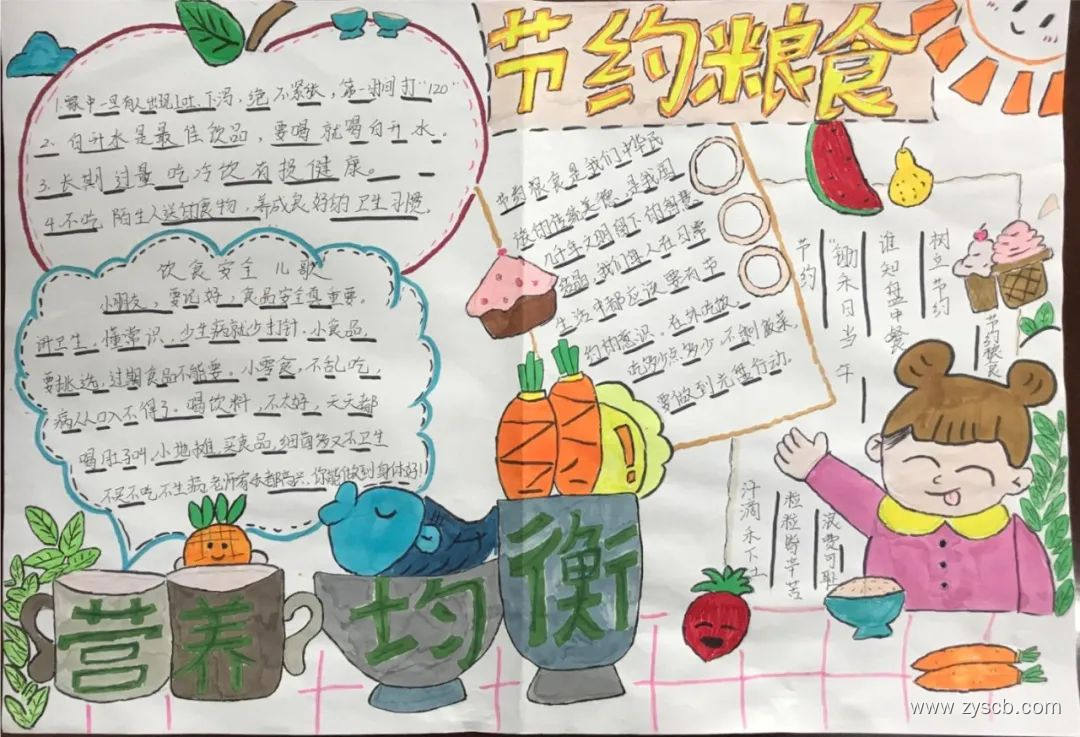 节约粮食
1.家中一旦有人出现上吐、下泻，绝不紧张，第一时间打“120”
2、白开水是最佳饮品，要喝就喝白开水。
3.长期过量吃冷饮有损健康。
4.不吃陌生人送的食物，养成良好的卫生习惯。
饮食安全儿歌
小朋友，要记好，食品安全真重要。
讲卫生，懂常识，少生病就少打针，小食品，
要挑选，过期食品不能要。小零食，不乱吃，
病从口入不得了。喝饮料，不太好，天天都
喝肚子叫，小地摊，买食品，细菌多又不卫生
不买不吃不生病，老师家长都高兴，你能做到身体好！
节约粮食是我们中华民
族的传统美德，是我国
几千年文明留下的智慧
结晶，我们每人在日常
生活中都应该要有节
约的意识，在外吃饭，
吃多少点多少，不剩饭菜，
要做到光盘行动。
节约
“锄禾日当午
谁知盘中餐
树立节约
节约粮食
汗滴禾下土
粒粒皆辛苦
浪费可耻
营养均衡
www.zyscb.com